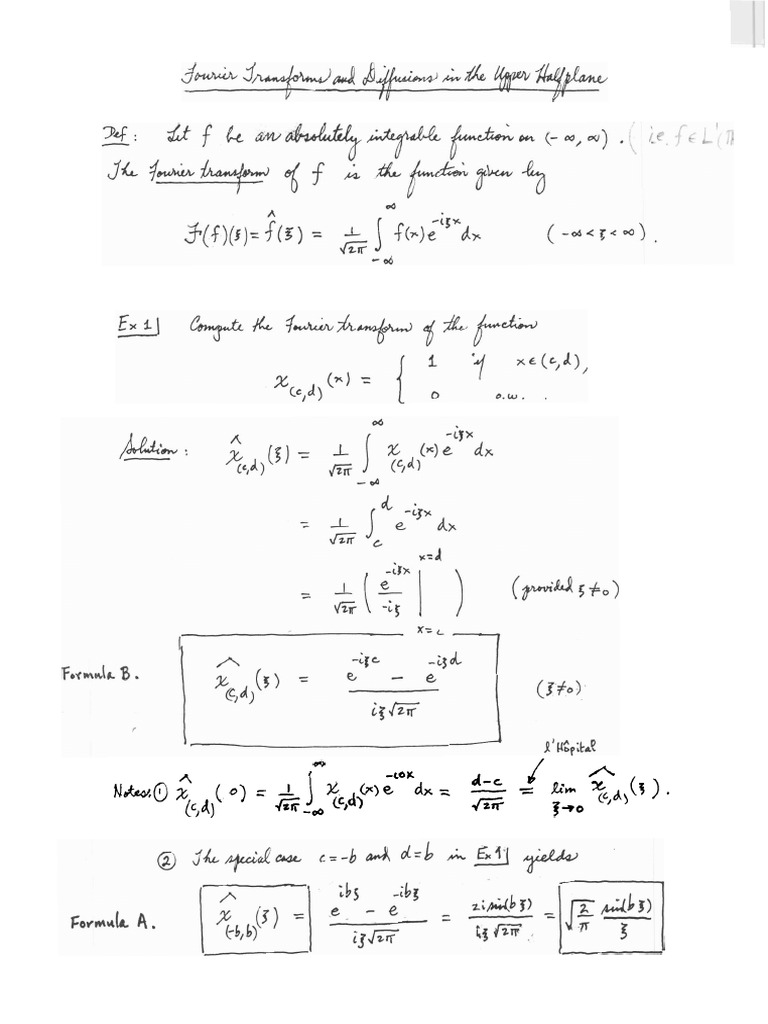 Fourier Transforms and Diffusions in the Upper Halfplane
Def: Let f be an absolutely integrable function on (-∞, ∞). (i.e. f ∈ L¹(ℝ
The Fourier transform of f is the function given by
F(f)(ξ) = f̂(ξ) = 1/√2π ∫_{-∞}^{∞} f(x) e^{-iξx} dx (-∞ < ξ < ∞).
Ex 1] Compute the Fourier transform of the function
χ_{(c,d)}(x) = { 1 if x ∈ (c,d),
0 o.w. .
Solution: χ̂_{(c,d)}(ξ) = 1/√2π ∫_{-∞}^{∞} χ_{(c,d)}(x) e^{-iξx} dx
= 1/√2π ∫_c^d e^{-iξx} dx
= 1/√2π ( e^{-iξx}/-iξ |_{x=c}^{x=d} ) (provided ξ ≠ 0)
Formula B. χ̂_{(c,d)}(ξ) = (e^{-iξc} - e^{-iξd})/(iξ√2π) (ξ ≠ 0)
l'Hôpital
Notes: ① χ̂_{(c,d)}(0) = 1/√2π ∫_{-∞}^{∞} χ_{(c,d)}(x) e^{-i0x} dx = (d-c)/√2π = lim_{ξ→0} χ̂_{(c,d)}(ξ).
② The special case c = -b and d = b in Ex 1] yields
Formula A. χ̂_{(-b,b)}(ξ) = (e^{ibξ} - e^{-ibξ})/(iξ√2π) = 2i sin(bξ)/(iξ√2π) = √(2/π) sin(bξ)/ξ